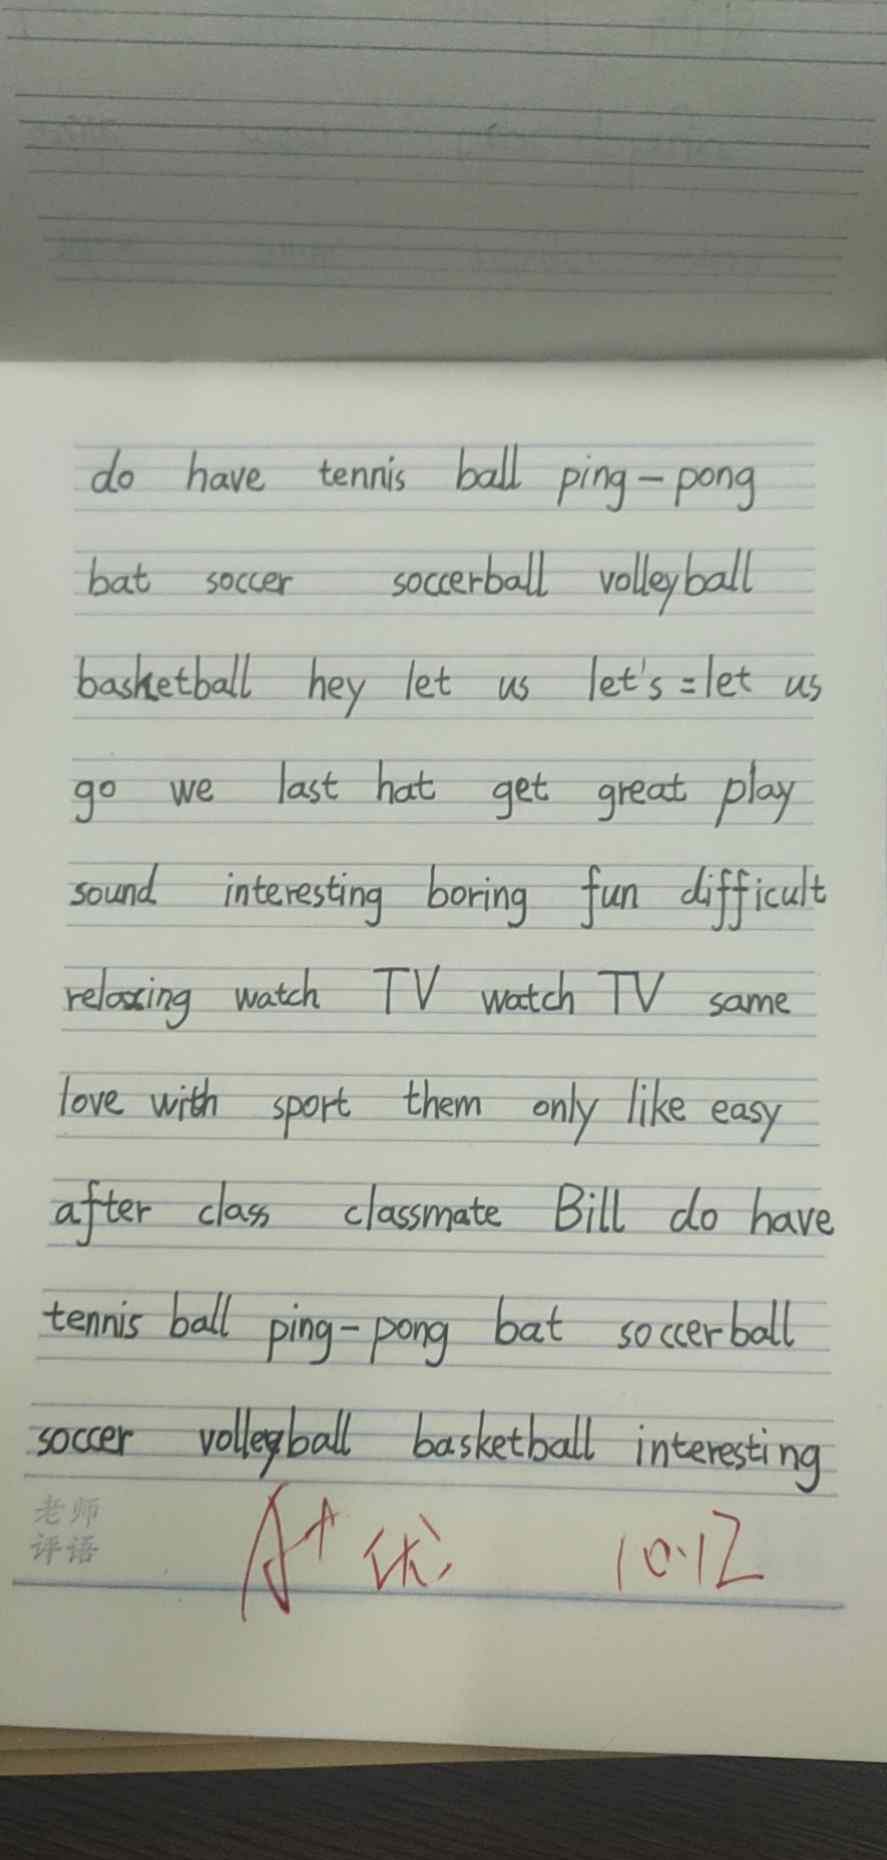 do have tennis ball ping-pong
bat soccer soccerball volleyball
basketball hey let us let's = let us
go we last hat get great play
sound interesting boring fun difficult
relaxing watch TV watch TV same
love with sport them only like easy
after class classmate Bill do have
tennis ball ping-pong bat soccerball
soccer volleyball basketball interesting
老师
评语
A+ 优 10.12